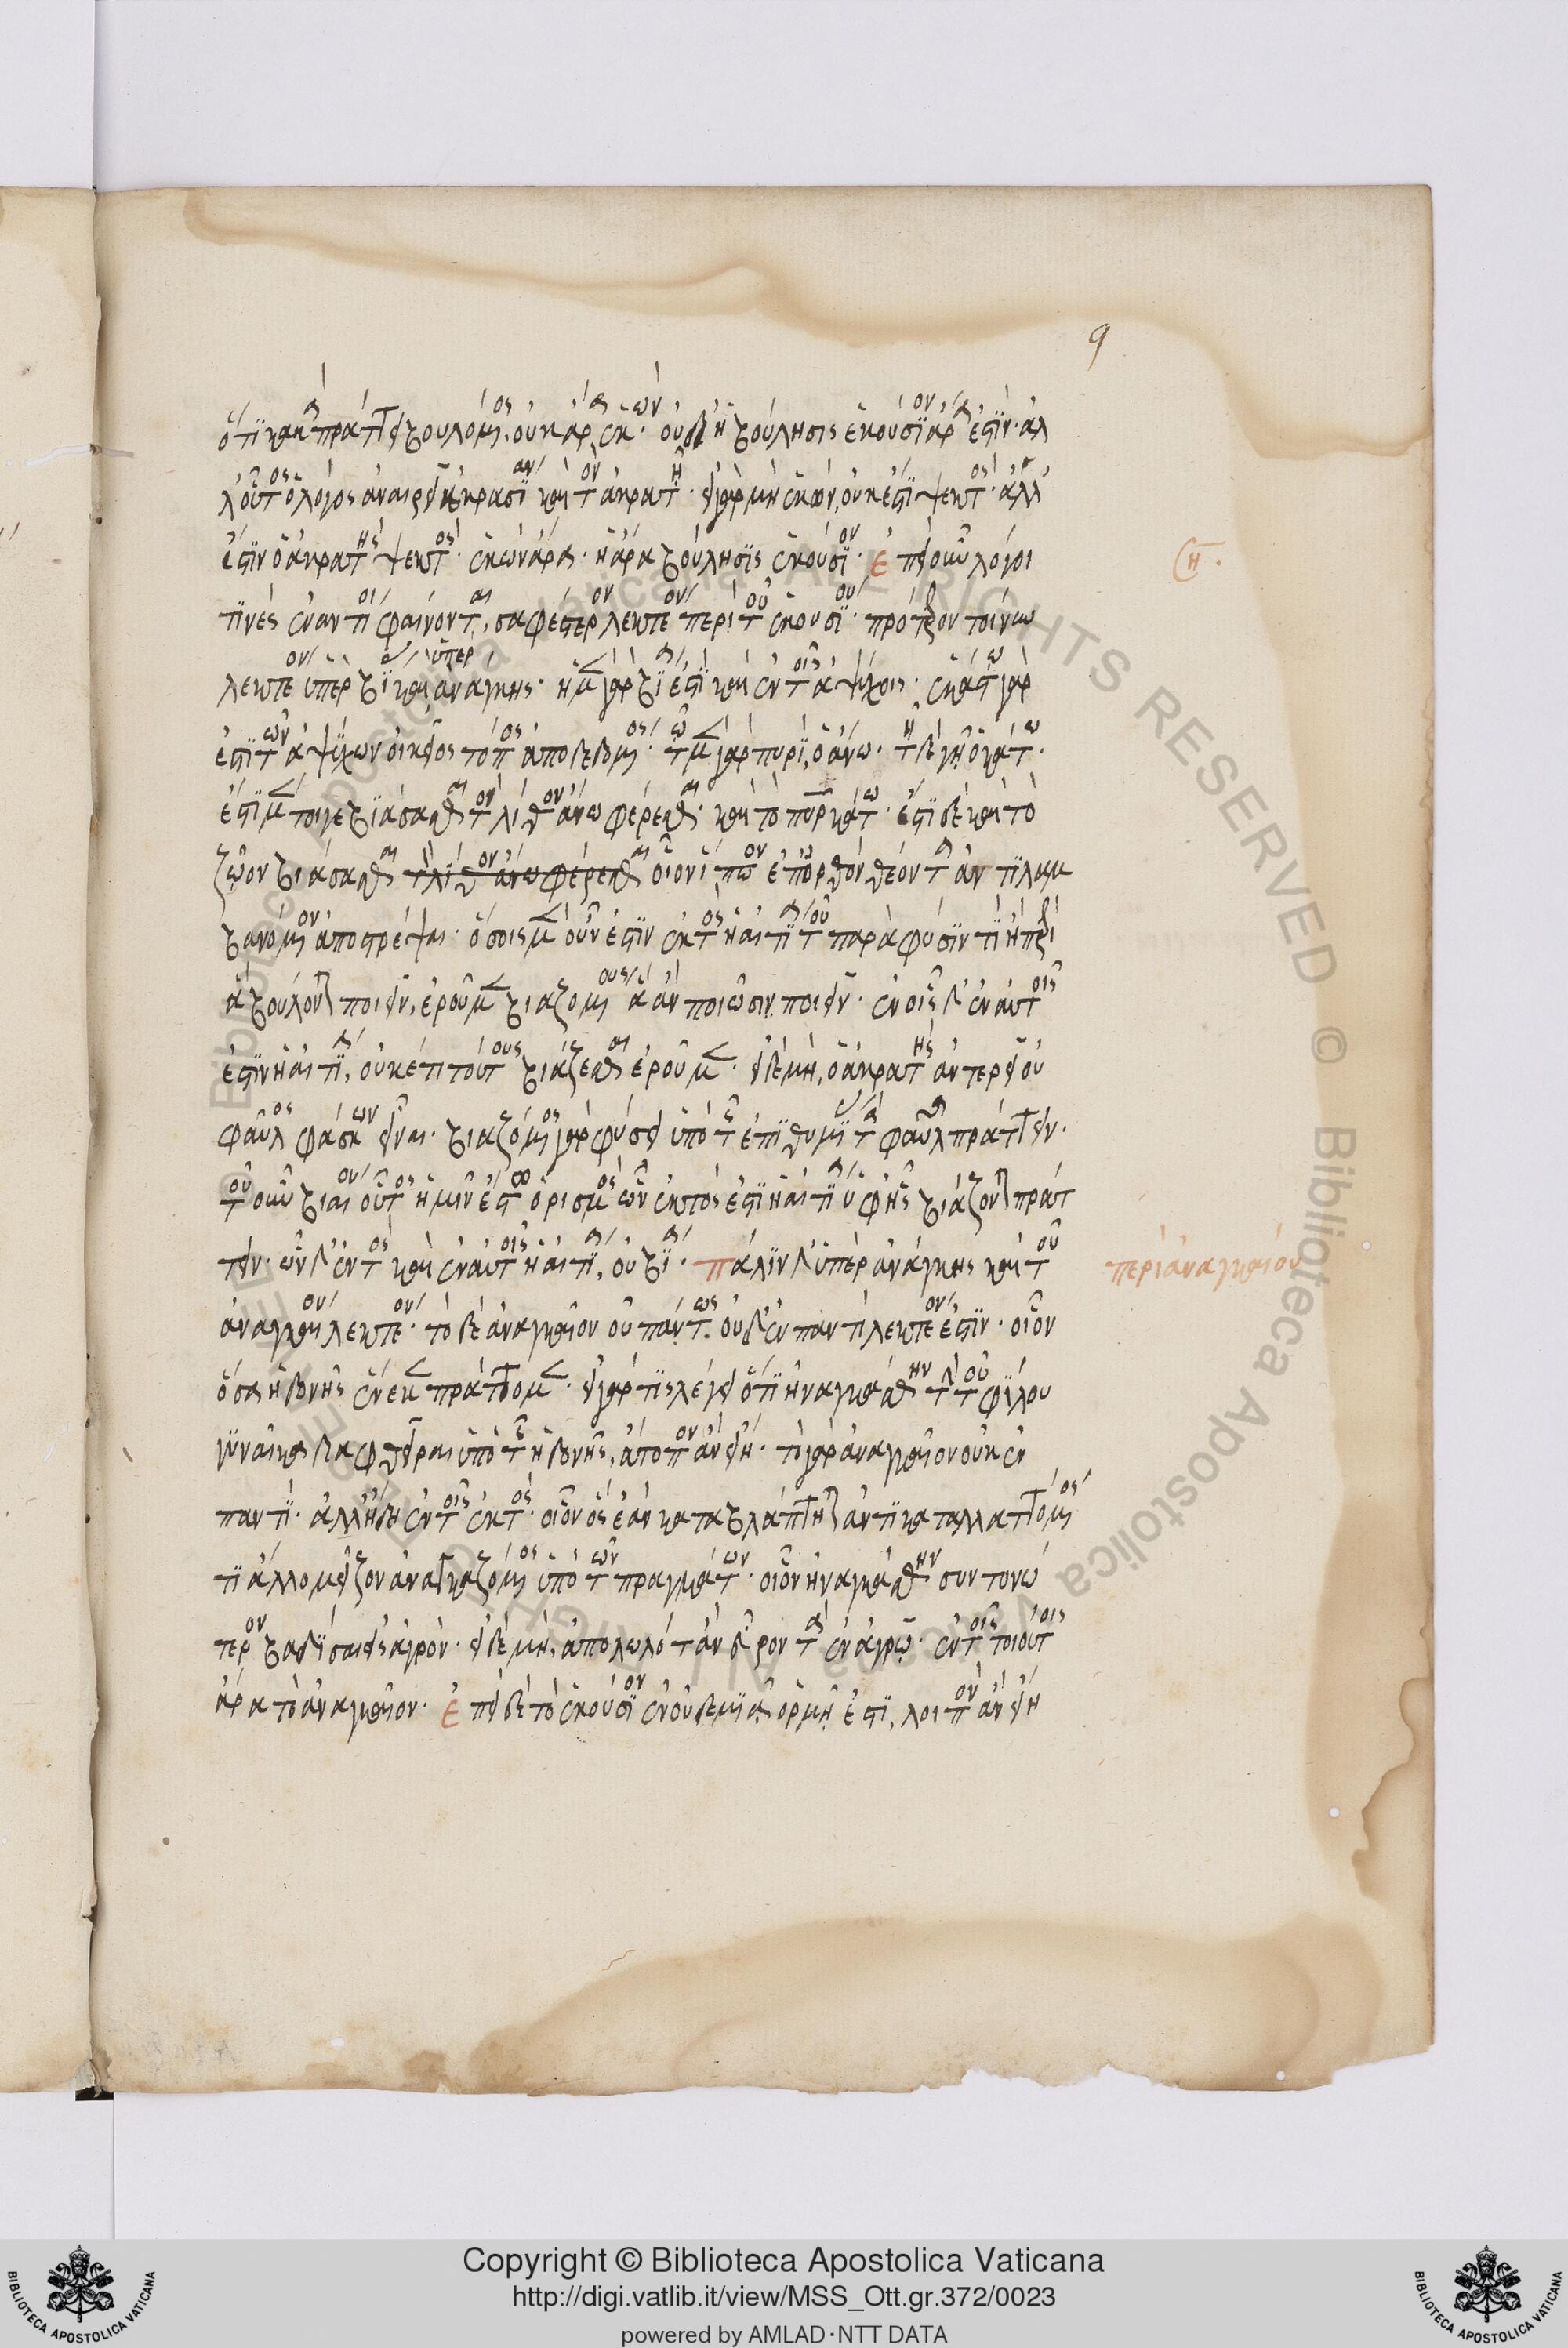 ὅτι κακὰ πράττει βουλόμενος, οὐκ ἄρα ἑκών· οὐδ' ἡ βούλησις ἑκούσιον ἄρα ἐστίν· ἀλ
λ' οὗτος ὁ λόγος ἀναιρεῖ ἀκρασίαν καὶ τὸν ἀκρατῆ· εἰ γὰρ μὴ ἑκὼν, οὐκ ἔστι ψεκτός· ἀλλ'
ἔστιν ὁ ἀκρατὴς ψεκτός· ἑκὼν ἄρα· ἡ ἄρα βούλησις ἑκούσιον· ἐπεὶ οὖν λόγοι
τινὲς ἐναντίοι φαίνονται, σαφέστερον λεκτέον περὶ τοῦ ἑκουσίου· πρότερον τοίνυν
λεκτέον ὑπὲρ βίας καὶ ὑπὲρ ἀνάγκης· ἡ μὲν γὰρ βία ἐστὶ καὶ ἐν τοῖς ἀψύχοις· ἑκάστω γὰρ
ἐπὶ τῶν ἀψύχων οἰκεῖος τόπος ἀποδεδομένος· τῶ μὲν γὰρ πυρὶ, ὁ ἄνω· τῆ δὲ γῆ ὁ κάτω·
ἔστι μέντοι γε βιάσασθαι τὸν λίθον ἄνω φέρεσθαι· καὶ τὸ πῦρ κάτω· ἔστι δὲ καὶ τὸ
ζῶον βιάσασθαι τὸν λίθον ἄνω φέρεσθαι οἷον ἵππον ἐπ' ὀρθὸν θέοντα ἀντιλαμ
βανόμενον ἀποστρέψαι· ὅσοις μὲν οὖν ἐστὶν ἐκτὸς ἡ αἰτία τοῦ παρὰ φύσιν τι ἢ παρ'
ἃ βούλονται ποιεῖν, ἐροῦμεν βιαζομένους ἃ ἂν ποιῶσιν ποιεῖν· ἐν οἷς δ' ἐν αὐτοῖς
ἐστὶν ἡ αἰτία, οὐκέτι τούτους βιάζεσθαι ἐροῦμεν· εἰ δὲ μὴ, ὁ ἀκρατὴς ἀντερεῖ οὐ
φαῦλος φάσκων εἶναι· βιαζόμενος γὰρ φήσει ὑπὸ τῆς ἐπιθυμίας τὰ φαῦλα πράττειν·
τοῦ οὖν βιαίου οὗτος ἡμῖν ἔστω ὁρισμὸς ὧν ἐκτός ἐστιν ἡ αἰτία ὑφ' ἧς βιάζονται πράτ
τειν· ὧν δ' ἐντὸς καὶ ἐν αὐτοῖς ἡ αἰτία, οὐ βία· πάλιν δ' ὑπὲρ ἀνάγκης καὶ τοῦ
ἀναγκαίου λεκτέον· τὸ δὲ ἀναγκαῖον οὐ πάντως οὐδ' ἐν παντὶ λεκτέον ἐστίν· οἷον
ὅσα ἡδονῆς ἕνεκεν πράττομεν· εἰ γάρ τις λέγει ὅτι ἠναγκάσθην τὴν τοῦ φίλου
γυναῖκα διαφθεῖραι ὑπὸ τῆς ἡδονῆς, ἄτοπον ἂν εἴη· τὸ γὰρ ἀναγκαῖον οὐκ ἐν
παντὶ· ἀλλ' ἤδη ἐν τοῖς ἐκτός· οἷον ὃς ἐὰν καταβλάπτηται ἀντικαταλλαττόμενος
τι ἄλλο μεῖζον ἀναγκαζόμενος ὑπὸ τῶν πραγμάτων· οἷον ἠναγκάσθην συντονώ
τερον βαδίσαι εἰς ἀγρόν· εἰ δὲ μὴ, ἀπολωλότ' ἂν εὗρον τὰ ἐν ἀγρῶ· ἐν τοῖς τοιούτοις
ἄρα τὸ ἀναγκαῖον· ἐπεὶ δὲ τὸ ἑκούσιον ἐν οὐδεμιᾷ ὁρμῆ ἐστὶ, λοιπὸν ἂν εἴη
9
περὶ ἀναγκαίου
Copyright © Biblioteca Apostolica Vaticana
http://digi.vatlib.it/view/MSS_Ott.gr.372/0023
powered by AMLAD·NTT DATA